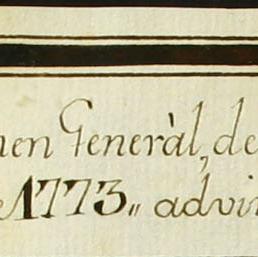 men Generàl, de
e 1773,, advir